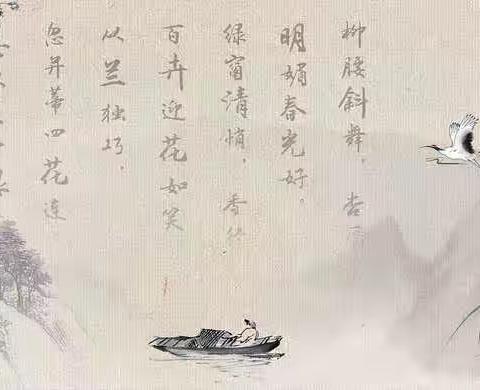 柳腰斜舞，杏
明媚春光好。
绿窗清悄，香
百卉迎花如笑
从兰独巧，
忽开蒂四花连